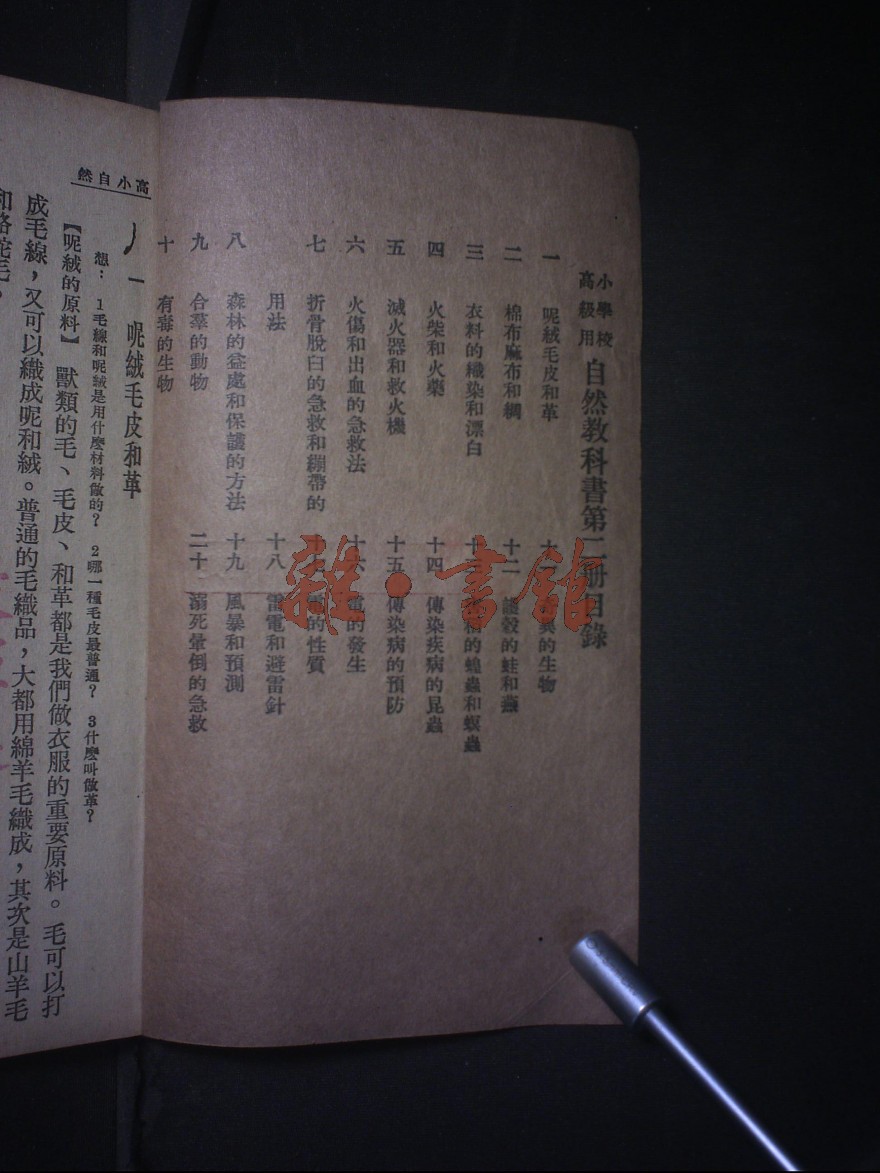 小學校
高級用
自然教科書第二册目錄
一 呢絨毛皮和革
二 棉布麻布和綢
三 衣料的織染和漂白
四 火柴和火藥
五 滅火器和救火機
六 火傷和出血的急救法
七 折骨脫臼的急救和繃帶的
用法
八 森林的益處和保護的方法
九 合羣的動物
十 有毒的生物
十 的生物
十二 護穀的蛙和燕
十 的蝗蟲和螟蟲
十四 傳染疾病的昆蟲
十五 傳染病的預防
十六 電的發生
電的性質
十八 雷電和避雷針
十九 風暴和預測
二十 溺死暈倒的急救
雜·書館
高小自然
一 呢絨毛皮和革
想：1毛線和呢絨是用什麼材料做的？ 2哪一種毛皮最普通？ 3什麼叫做革？
【呢絨的原料】 獸類的毛、毛皮、和革都是我們做衣服的重要原料。毛可以打
成毛線，又可以織成呢和絨。普通的毛織品，大都用綿羊毛織成，其次是山羊毛
和駱駝毛。